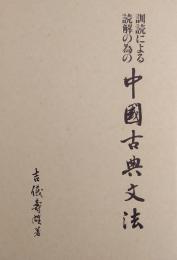 訓読による
読解の為の
中國古典文法
吉儀寿著